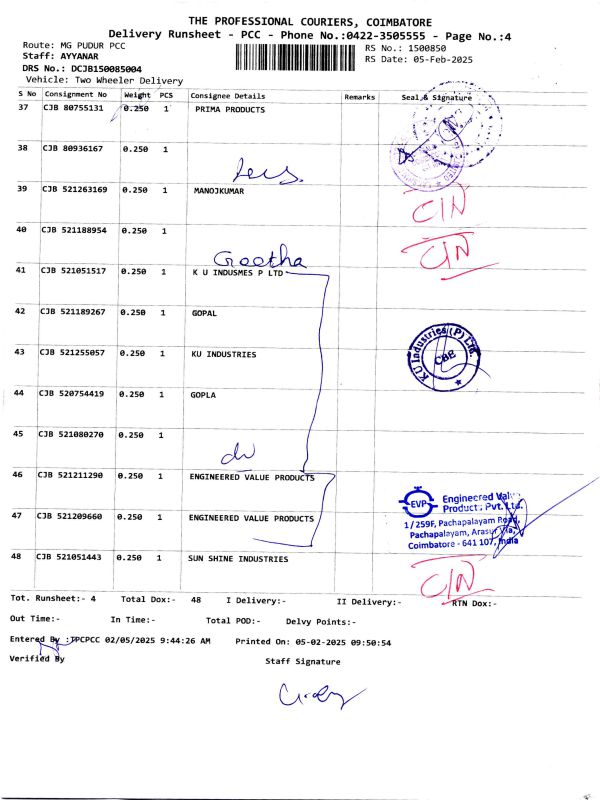 THE PROFESSIONAL COURIERS, COIMBATORE
Delivery Runsheet - PCC - Phone No.:0422-3505555 - Page No.:4
Route: MG PUDUR PCC
RS No.: 1500850
Staff: AYYANAR
RS Date: 05-Feb-2025
DRS No.: DCJB150085004
Vehicle: Two Wheeler Delivery
S No Consignment No Weight PCS Consignee Details Remarks Seal & Signature
37 CJB 80755131 0.250 1 PRIMA PRODUCTS
38 CJB 80936167 0.250 1
39 CJB 521263169 0.250 1 MANOJKUMAR C/N
40 CJB 521188954 0.250 1 Geetha C/N
41 CJB 521051517 0.250 1 K U INDUSMES P LTD
42 CJB 521189267 0.250 1 GOPAL
43 CJB 521255057 0.250 1 KU INDUSTRIES
KU Industries (P) Ltd.
CBE
44 CJB 520754419 0.250 1 GOPLA
45 CJB 521080270 0.250 1
46 CJB 521211290 0.250 1 ENGINEERED VALUE PRODUCTS
EVP Engineered Value
Products Pvt. Ltd.
1/259F, Pachapalayam Road,
Pachapalayam, Arasur Via,
Coimbatore - 641 107, India
47 CJB 521209660 0.250 1 ENGINEERED VALUE PRODUCTS
48 CJB 521051443 0.250 1 SUN SHINE INDUSTRIES C/N
Tot. Runsheet:- 4 Total Dox:- 48 I Delivery:- II Delivery:- RTN Dox:-
Out Time:- In Time:- Total POD:- Delvy Points:-
Entered By :TPCPCC 02/05/2025 9:44:26 AM Printed On: 05-02-2025 09:50:54
Verified By Staff Signature